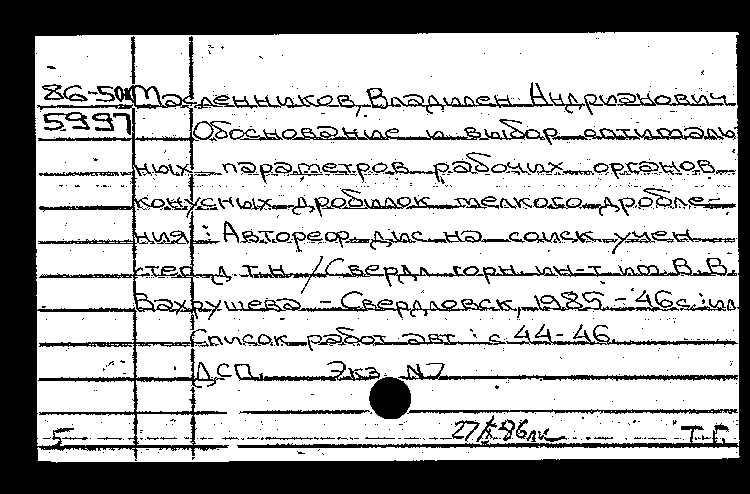 86-5дк Масленников, Владилен Андрианович
5997 Обоснование и выбор оптималь
ных параметров рабочих органов
конусных дробилок мелкого дробле-
ния : Автореф дис на соиск учен
степ д.т.н / Свердл горн ин-т им. В.В.
Вахрушева - Свердловск, 1985 - 46с.:ил
Список работ авт : с 44-46.
ДСП. Экз N7
5 86 Т.Г.